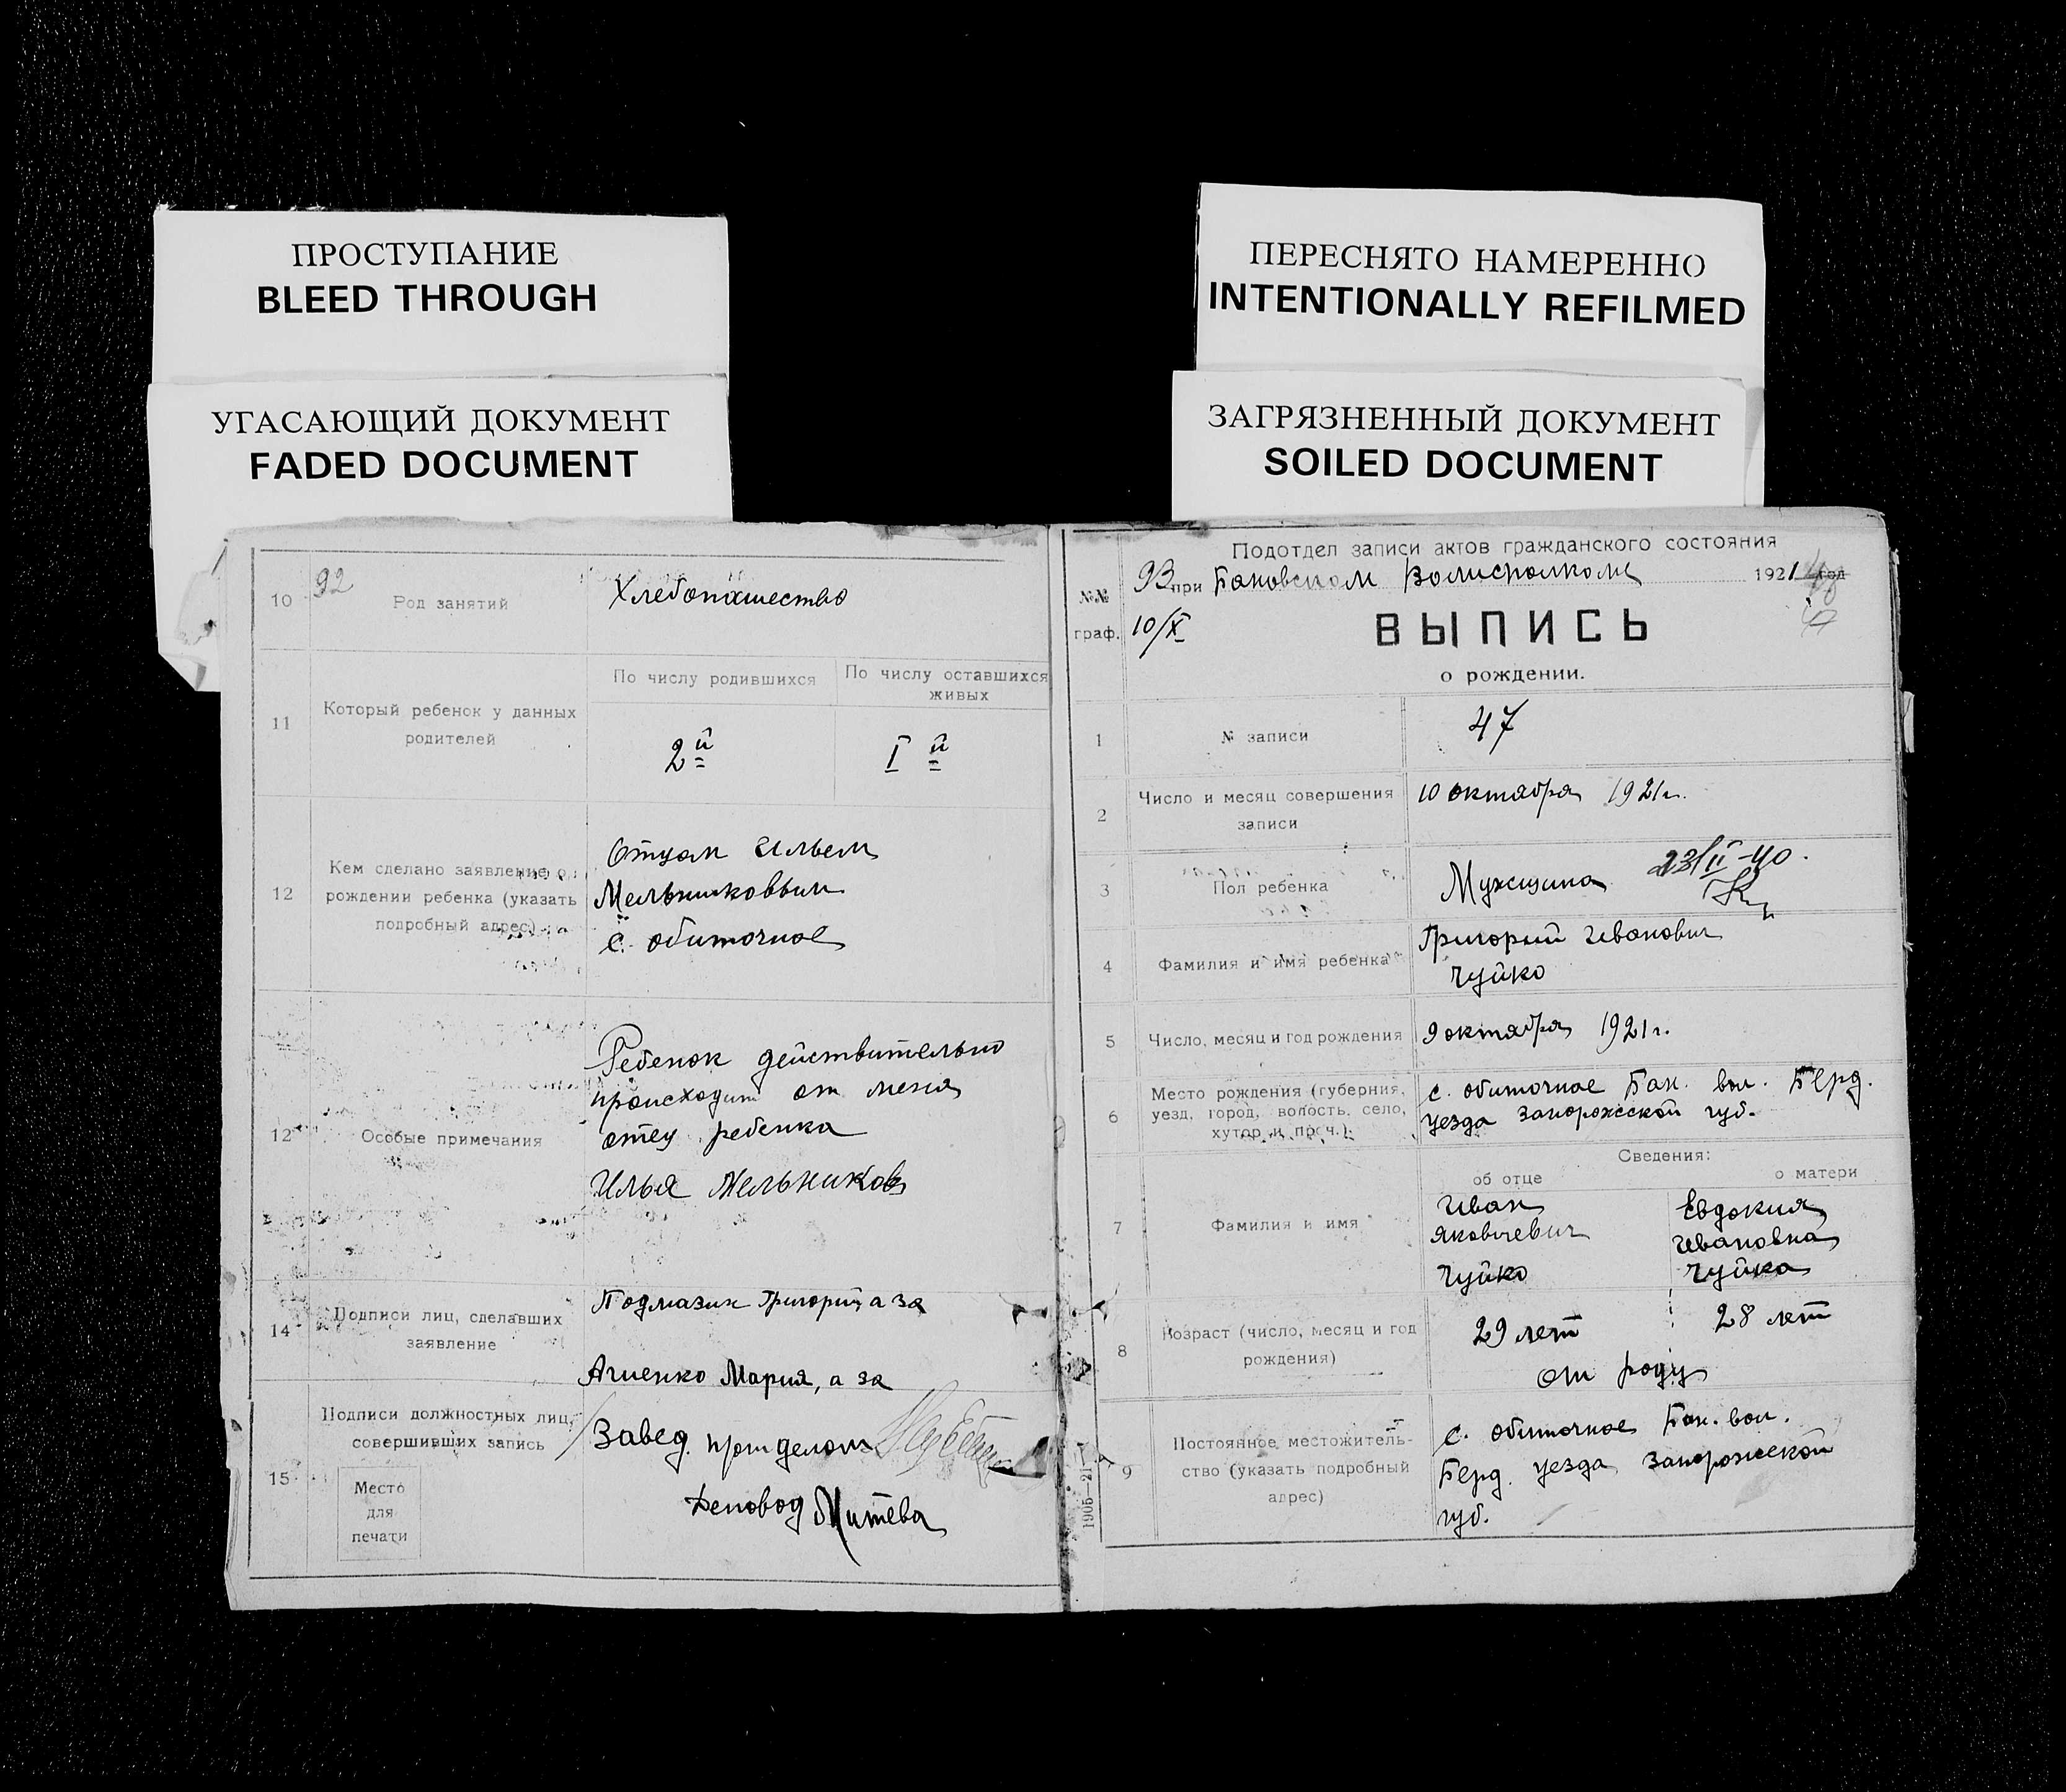 ПРОСТУПАНИЕ
BLEED THROUGH
УГАСАЮЩИЙ ДОКУМЕНТ
FADED DOCUMENT
ПЕРЕСНЯТО НАМЕРЕННО
INTENTIONALLY REFILMED
ЗАГРЯЗНЕННЫЙ ДОКУМЕНТ
SOILED DOCUMENT
92
10 Род занятий Хлебопашество
По числу родившихся По числу оставшихся
живых
11 Который ребенок у данных
родителей
2й I й
12 Кем сделано заявление о
рождении ребенка (указать
подробный адрес)
Отцом Ильем
Мельниковым
с. обиточное
12 Особые примечания
Ребенок действительно
происходит от меня
отец ребенка
Илья Мельников
14 Подписи лиц, сделавших
заявление
Подмазин Григорий, а за
Агиенко Мария, а за
15 Подписи должностных лиц,
совершивших запись
Место
для
печати
Завед.
Деловод Митева
Подотдел записи актов гражданского состояния
№№ 93 при Бановском Волисполкоме 1921 год
граф. 10/X
ВЫПИСЬ
о рождении.
1 № записи 47
2 Число и месяц совершения
записи
10 октября 1921г.
3 Пол ребенка Мужщина 23/II-40.
4 Фамилия и имя ребенка
Григорий Иванович
Чуйко
5 Число, месяц и год рождения 9 октября 1921г.
6 Место рождения (губерния,
уезд, город, волость, село,
хутор и проч.)
с. обиточное Бан. вол. Берд.
уезда Запорожской губ.
Сведения:
об отце о матери
7 Фамилия и имя
Иван
Яковлевич
Чуйко
Евдокия
Ивановна
Чуйко
8 Возраст (число, месяц и год
рождения)
29 лет 28 лет
от роду
9 Постоянное местожитель-
ство (указать подробный
адрес)
с. обиточное Бан. вол.
Берд. уезда Запорожской
губ.
1905—21